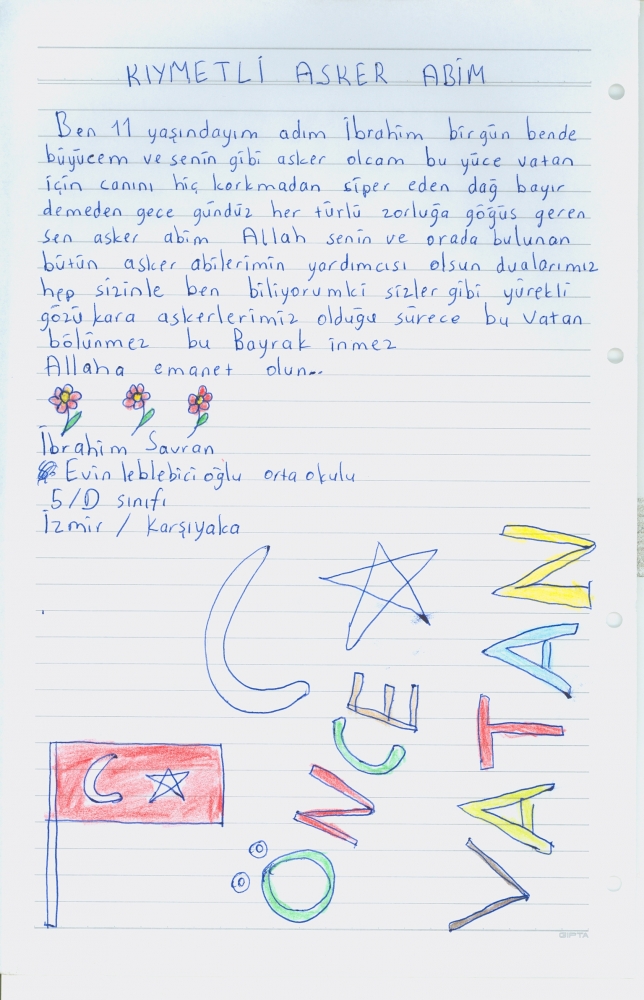 KIYMETLİ ASKER ABİM
Ben 11 yaşındayım adım İbrahim birgün bende
büyücem ve senin gibi asker olcam bu yüce vatan
için canını hiç korkmadan siper eden dağ bayır
demeden gece gündüz her türlü zorluğa göğüs geren
sen asker abim Allah senin ve orada bulunan
bütün asker abilerimin yardımcısı olsun dualarımız
hep sizinle ben biliyorumki sizler gibi yürekli
gözü kara askerlerimiz olduğu sürece bu vatan
bölünmez bu Bayrak inmez
Allaha emanet olun...
İbrahim Savran
Evin leblebicioğlu orta okulu
5/D sınıfı
İzmir / Karşıyaka
ÖNCE
VATAN
GIPTA